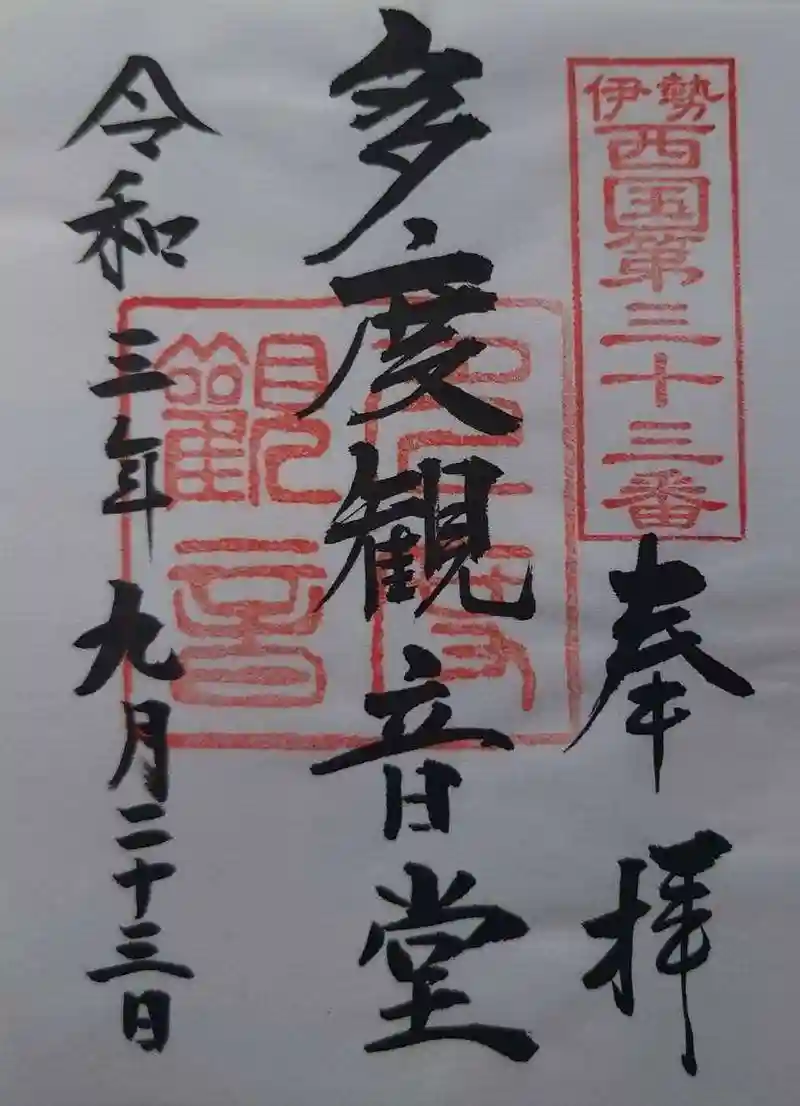 伊勢
西国第三十三番
奉拝
多度観音堂
觀音
令和三年九月二十三日